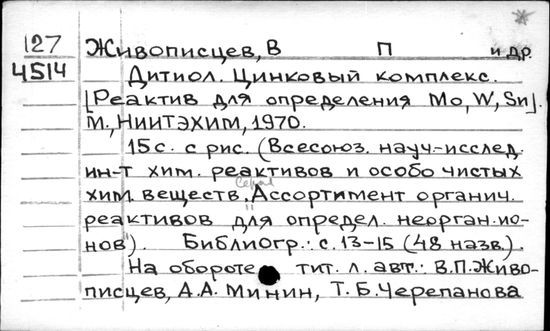 127
4514
Живописцев, В П и др.
Дитиол. Цинковый комплекс.
[Реактив для определения Mo, W, Sn].
М., НИИТЭХИМ, 1970.
15 с. с рис. (Всесоюз. науч-исслед.
ин-т хим. реактивов и особо чистых
хим. веществ. Серия "Ассортимент органич.
реактивов для определ. неорган. ио-
нов"). Библиогр.: с. 13-15 (48 назв.).
На обороте тит. л. авт.: В.П. Живо-
писцев, А.А. Минин, Т.Б. Черепанова